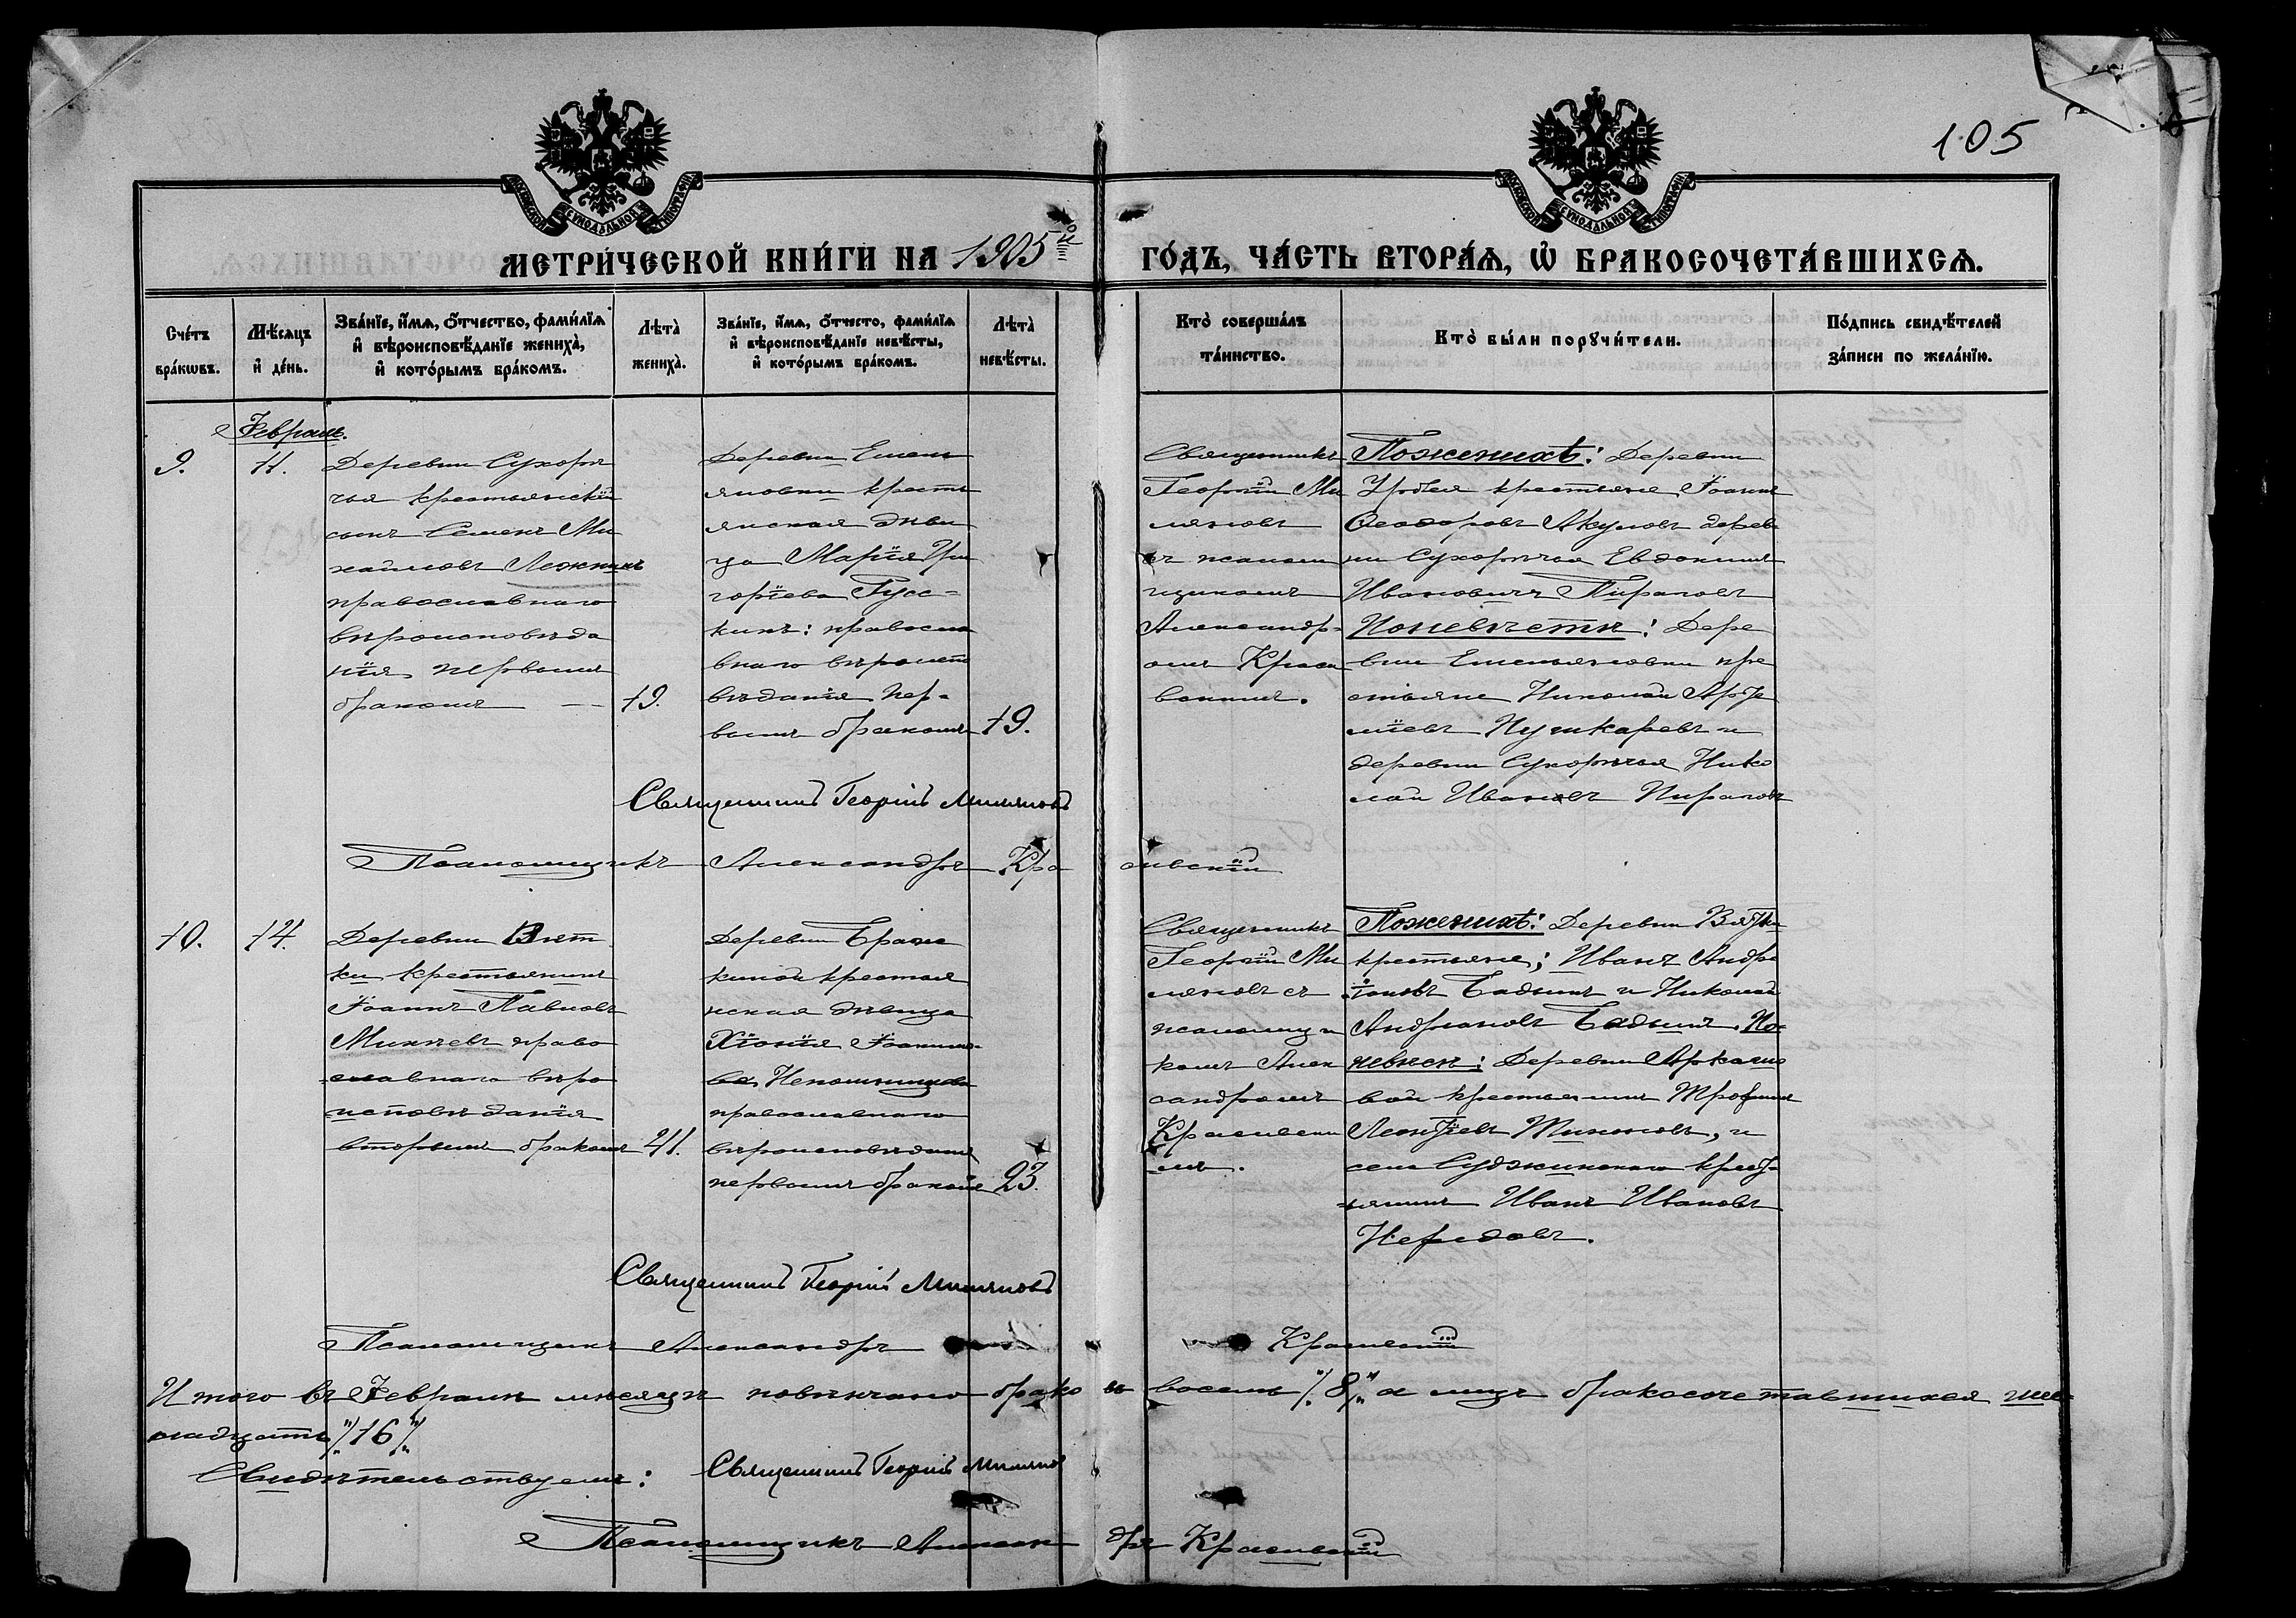 105
МОСКОВСКОЙ СѴНОДАЛЬНОЙ ТИПОГРАФІИ
МОСКОВСКОЙ СѴНОДАЛЬНОЙ ТИПОГРАФІИ
МЕТРИ́ЧЕСКОЙ КНИ́ГИ НА 1905 ГО́ДЪ, ЧА́СТЬ ВТОРА́Ѧ, Ѽ БРАКОСОЧЕТА́ВШИХСѦ.
Сче́тъ бра́кѡвъ.
Мѣ́сѧцъ и҆ де́нь.
Зва́нїе, и҆́мѧ, ѻ҆́тчество, фами́лїѧ и҆ вѣроисповѣ́данїе жениха̀, и҆ кото́рымъ бра́комъ.
Лѣта̀ жениха̀.
Зва́нїе, и҆́мѧ, ѻ҆́тчесто, фами́лїѧ и҆ вѣроисповѣ́данїе невѣ́сты, и҆ кото́рымъ бра́комъ.
Лѣта̀ невѣ́сты.
Кто̀ соверша́лъ та́инство.
Кто̀ бы́ли порꙋчи́тели.
По́дпись свидѣ́телей за́писи по жела́нїю.
Февраль.
9.
11.
Деревни Сухорѣ
чья крестьянскій
сынъ Семенъ Ми
хайловъ Лежнинъ
православнаго
вѣроисповѣда
нія первымъ
бракомъ —
19.
Деревни Емель
яновки кресть
янская дѣви
ца Марія Гри
горіева Гусс=
кинъ: правосла
внаго вѣроиспо
вѣданія пер-
вымъ бракомъ
19.
Священникъ
Георгій Ми
ляновъ
съ псалом
щикомъ
Александр-
омъ Краси
вскимъ.
Поженихѣ: Деревни
крестьяне Іоаннъ
Ѳеодоровъ Акуловъ дерев
ни Сухорѣчья Евдокимъ
Ивановичъ Пираговъ
Поневѣстѣ: Дере
вни Емельяновки кре
стьяне Николай Арте
міевъ Пушкаревъ и
деревни Сухорѣчья Нико
лай Ивановъ Пираговъ
Священникъ Георгій Миляновъ
Псаломщикъ Александръ Кра
сивскій
10.
14.
Деревни Вят
ки крестьянинъ
Іоаннъ Павловъ
Микчевъ право
славнаго вѣро
исповѣданія
вторымъ бракомъ
41.
Деревни Браж
киной крестья
нская дѣвица
Хіонія Іоанно-
ва Непомнищева
православнаго
вѣроисповѣданія
первымъ бракомъ
23.
Священникъ
Георгій Ми
ляновъ съ
псаломщи
комъ Алек
сандромъ
Красивски
мъ.
Поженихѣ: Деревни Вятки
крестьяне; Иванъ Андре
Бадьинъ и Николай
Андриановъ Бадьинъ. По-
невѣстѣ: Деревни
вой крестьянинъ Трофимъ
Леонтіевъ и
села крестья-
янинъ Иванъ Ивановъ
Нефедовъ.
Священникъ Георгій Миляновъ
Псаломщикъ Александръ Красивскій
Итого въ Февралѣ мѣсяцѣ повѣнчано брако въ восемь "/. 8 "/. а лицъ бракосочетавшихся шес-
надцать "/. 16 "/.
Свидѣтельствуемъ: Священникъ Георгій Милянов
Псаломщикъ Алексан дръ Красивскій